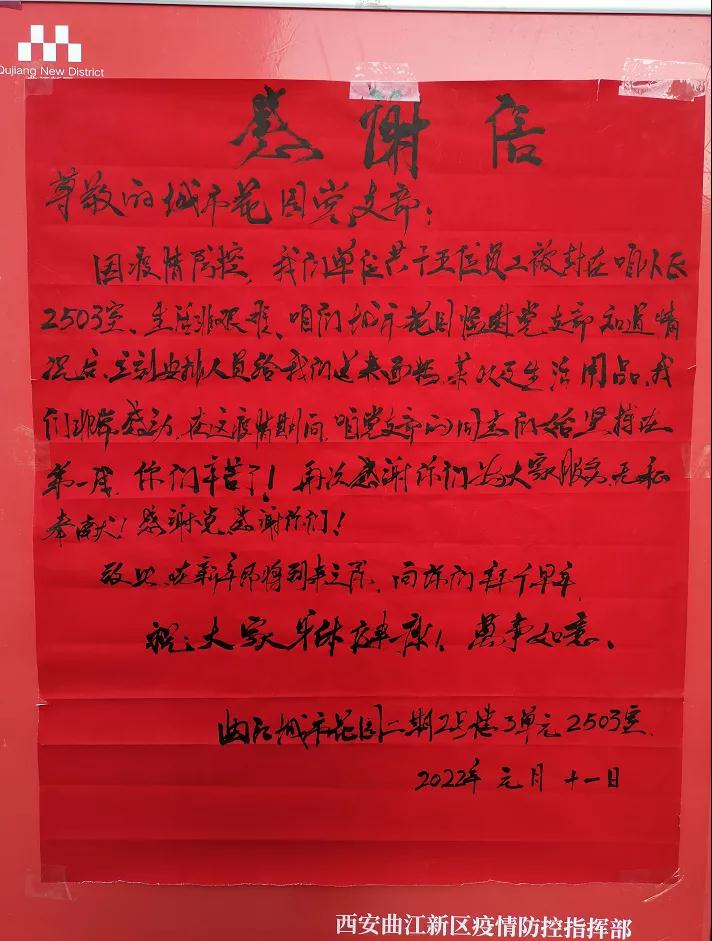 Qujiang New District
感谢信
尊敬的城市花园党支部：
因疫情防控，我们单位共十五位员工被封在咱小区
2503室、生活非常艰难、咱们城市花园临时党支部知道情
况后、立刻安排人员给我们送来面粉、菜以及生活用品、我
们非常感动、在这疫情期间、咱党支部的同志们始终坚持在
第一线、你们辛苦了！再次感谢你们为大家服务、无私
奉献！感谢党感谢你们！
致此、在新年即将到来之际、向你们拜个早年、
祝：大家身体健康！万事如意、
曲江城市花园二期2号楼3单元2503室
2022年元月十一日
西安曲江新区疫情防控指挥部